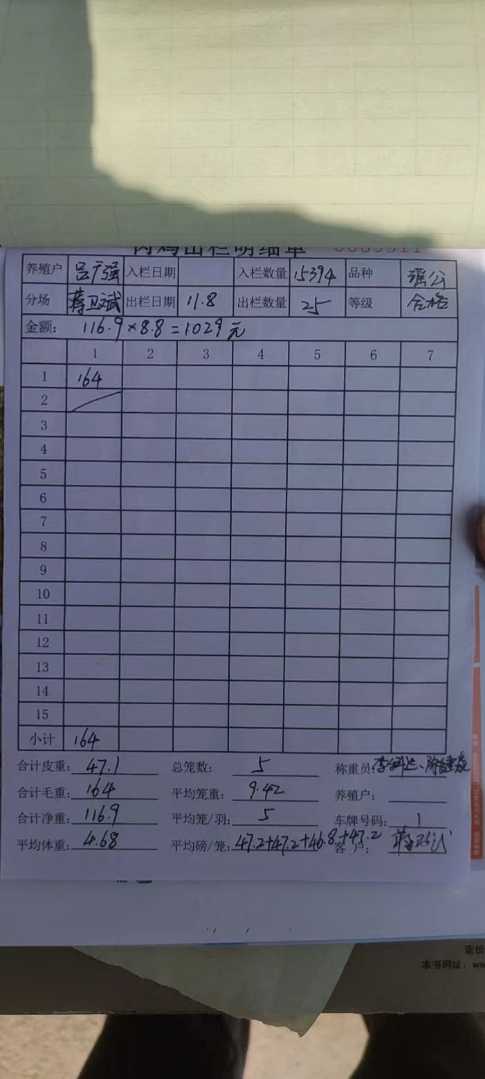 肉鸡出栏明细单
养殖户 吕广强 入栏日期 入栏数量 15394 品种 瑶公
分场 蒋卫斌 出栏日期 11.8 出栏数量 25 等级 合格
金额: 116.9×8.8=1029元
1 2 3 4 5 6 7
1 164
2
3
4
5
6
7
8
9
10
11
12
13
14
15
小计 164
合计皮重: 47.1 总笼数: 5 称重员:
合计毛重: 164 平均笼重: 9.42 养殖户:
合计净重: 116.9 平均笼/羽: 5 车牌号码: 1
平均体重: 4.68 平均磅/笼: 47.2+47.2+46.8+47.2 客户:
本书网址: